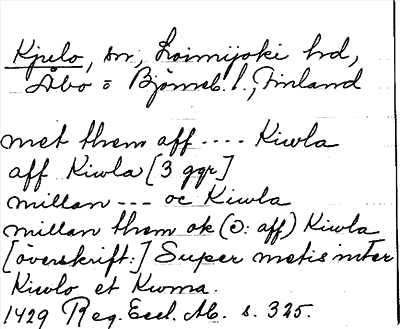 Kjulo, sn, Loimijoki hd,
Åbo o Björneb. l., Finland
met them aff .... Kiwla
aff Kiwla [3 ggr]
millan --- oc Kiwla
millan them ok (ɔ: aff) Kiwla
[överskrift:] Super metis inter
Kiwlo et Kuma.
1429 Reg. Eccl. Ab. s. 325.